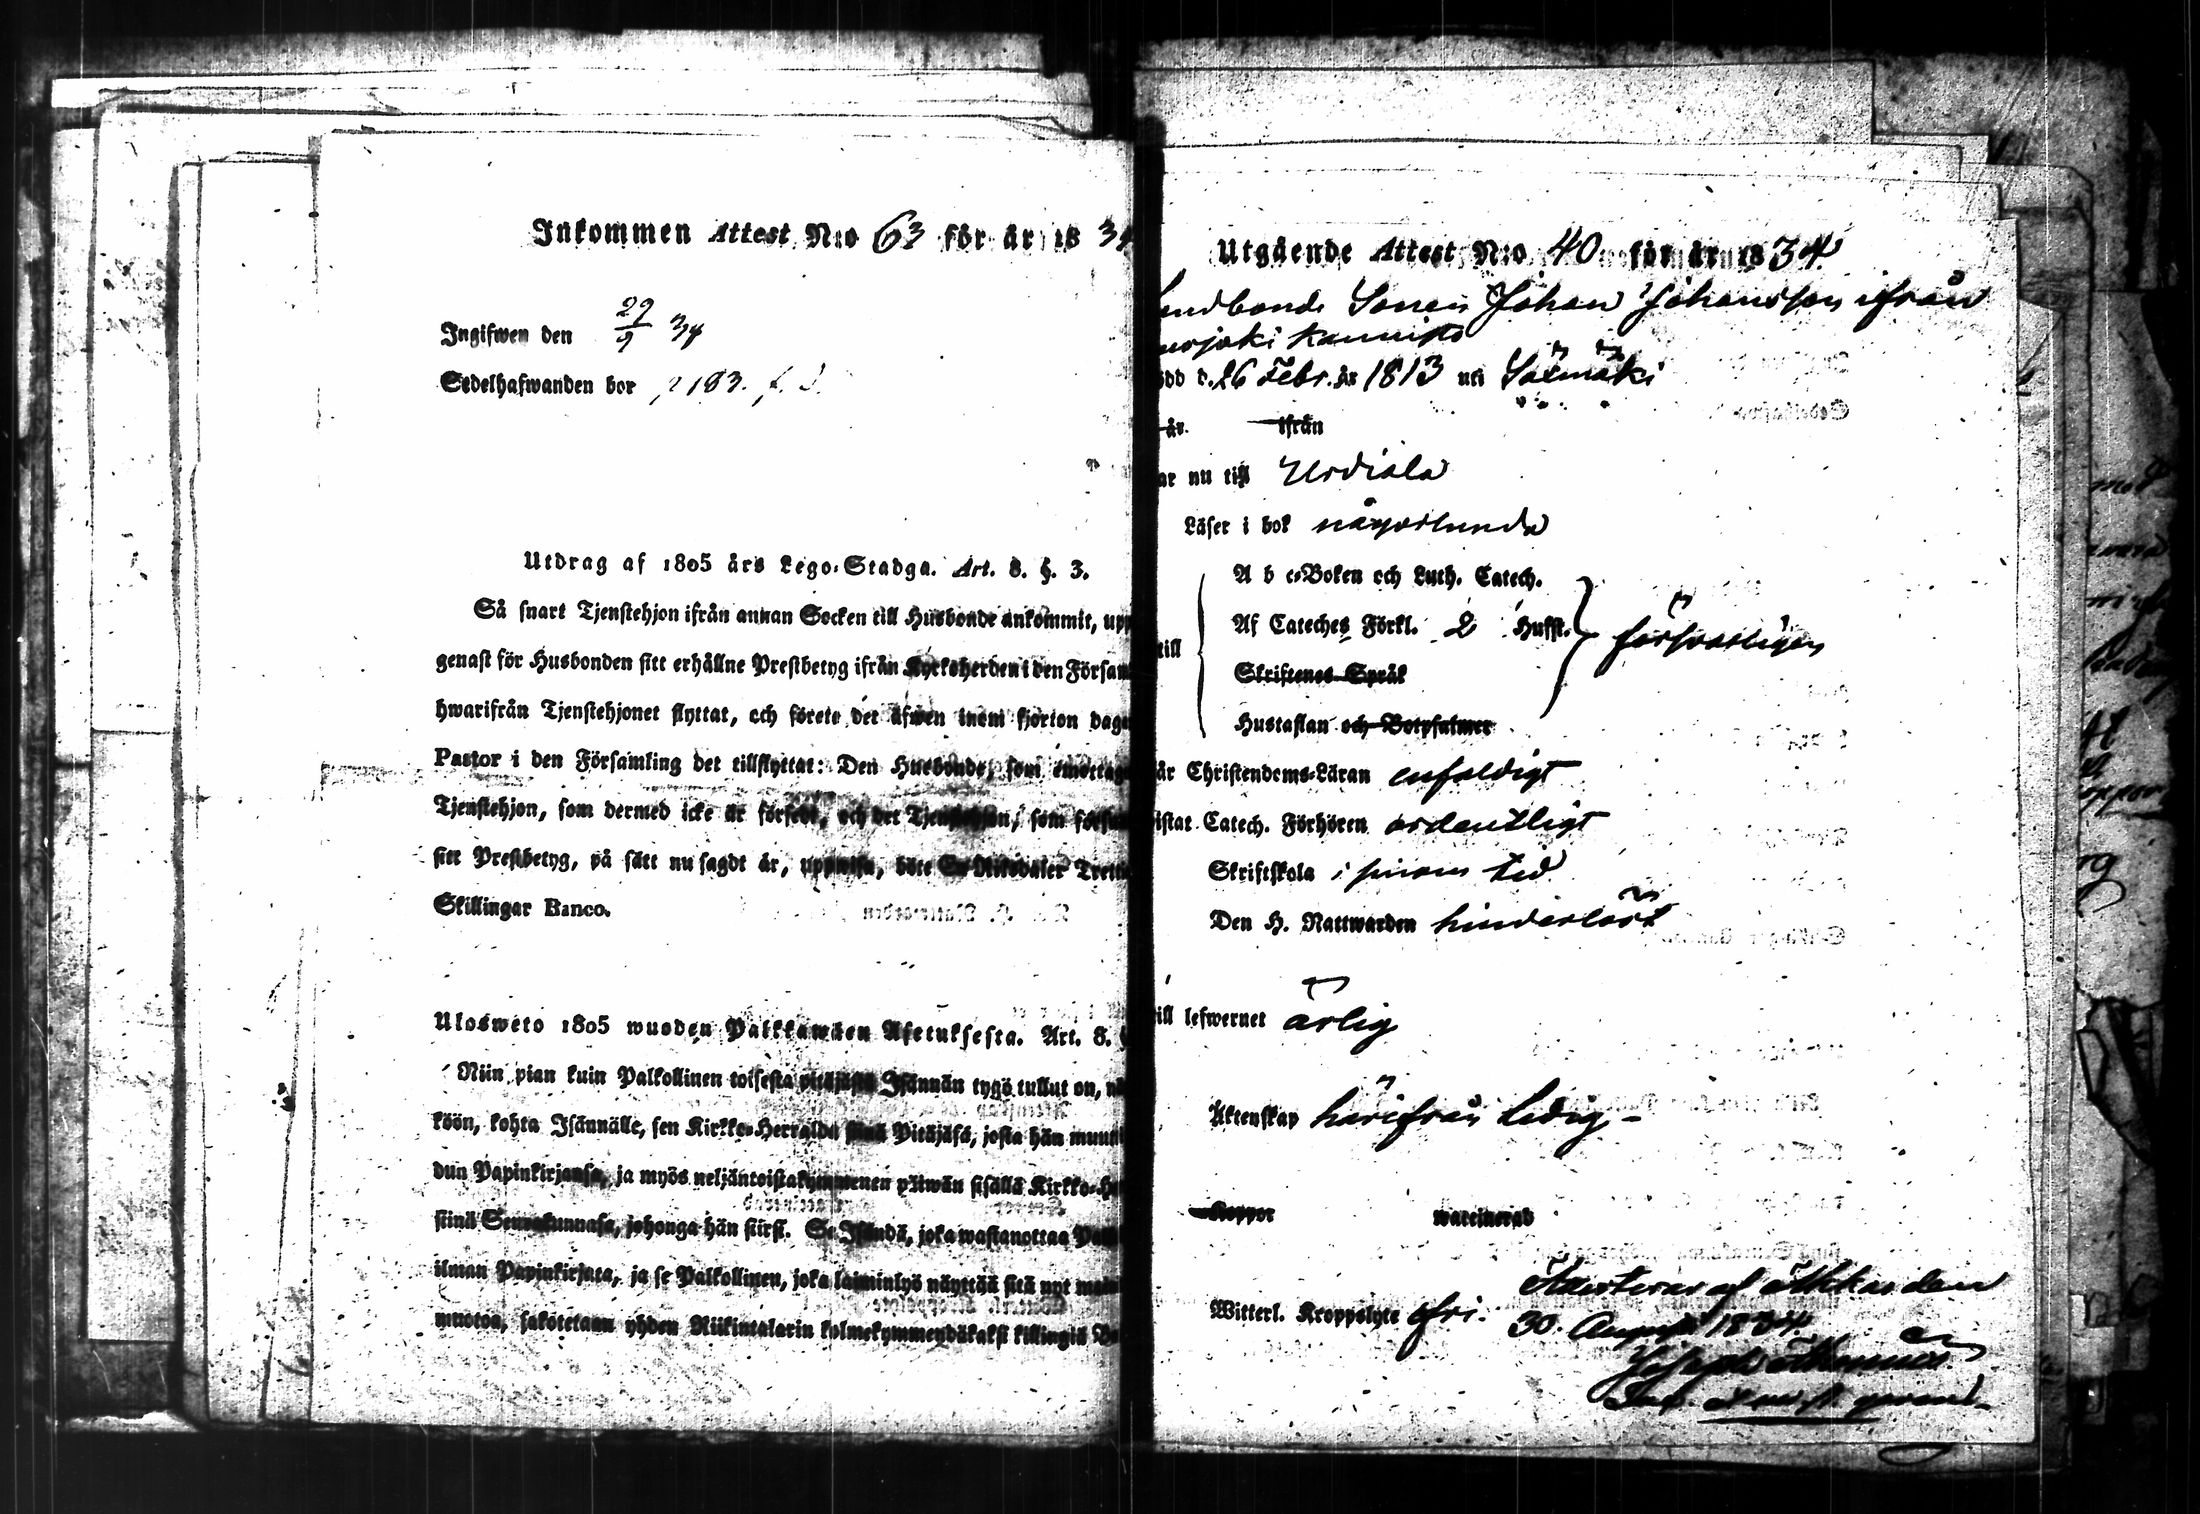 Inkommen Attest N:o 63 för år 18 34
Ingifwen den 29/9 34
Sedelhafwanden bor p 183.
Utdrag af 1805 års Lego-Stadga. Art. 8. §. 3.
Så snart Tjenstehjon ifrån annan Socken till Husbonde ankommit, upp
genast för Husbonden sitt erhållne Prestbetyg ifrån Kyrkoherden i den Försam
hwarifrån Tjenstehjonet flyttat, och förete det äfwen inom fjorton daga
Pastor i den Församling det tillflyttat: Den Husbonde, som emottage
Tjenstehjon, som dermed icke är försedt, och det Tjenstehjon, som försum
sitt Prestbetyg, på sätt nu sagdt är, uppwisa, böte En Riksdaler Trettio
Skillingar Banco.
Ulosweto 1805 wuoden Palkkawäen Asetuksesta. Art. 8.
Niin pian kuin Palkollinen toisesta pitäjästä Isännän tygö tullut on, nä
köön, kohta Isännälle, sen Kirkko-Herralda siinä Pitäjäsä, josta hän muutt
dun Papinkirjansa, ja myös neljäntoistakymmenen päiwän sisällä Kirkko-He
siinä Seurakunnasa, johonga hän siirst. Se Isändä, joka wastanottaa Pal
ilman Papinkirjata, ja se Palkollinen, joka laiminlyö näyttää sitä nyt main
muotoa, sakotetaan yhden Riikintalarin kolmekymmendäkaksi killingiä Ba
Utgående Attest N:o 40 för år 18 34.
Sonen Johan Johansson ifrån
dd d. 26 Febr. år 1813 uti Säkmäki
år ifrån
ar nu till Urdiala
Läser i bok någorlunda
A b c-Boken och Luth. Catech.
Af Cateches Förkl. 2 Hufst.
till försvarligen
Skriftenes Språk
Hustaflan och Botpsalmer
år Christendoms-Läran enfaldigt
istat Catech. Förhören ordentligt
Skriftskola i sinom tid
Den H. Nattwarden hinderlöst
ill lefwernet ärlig
Äktenskap härifrån ledig -
Koppor waccinerad
Witterl. Kroppslyte fri. Akkas den
30. Augusti 1834